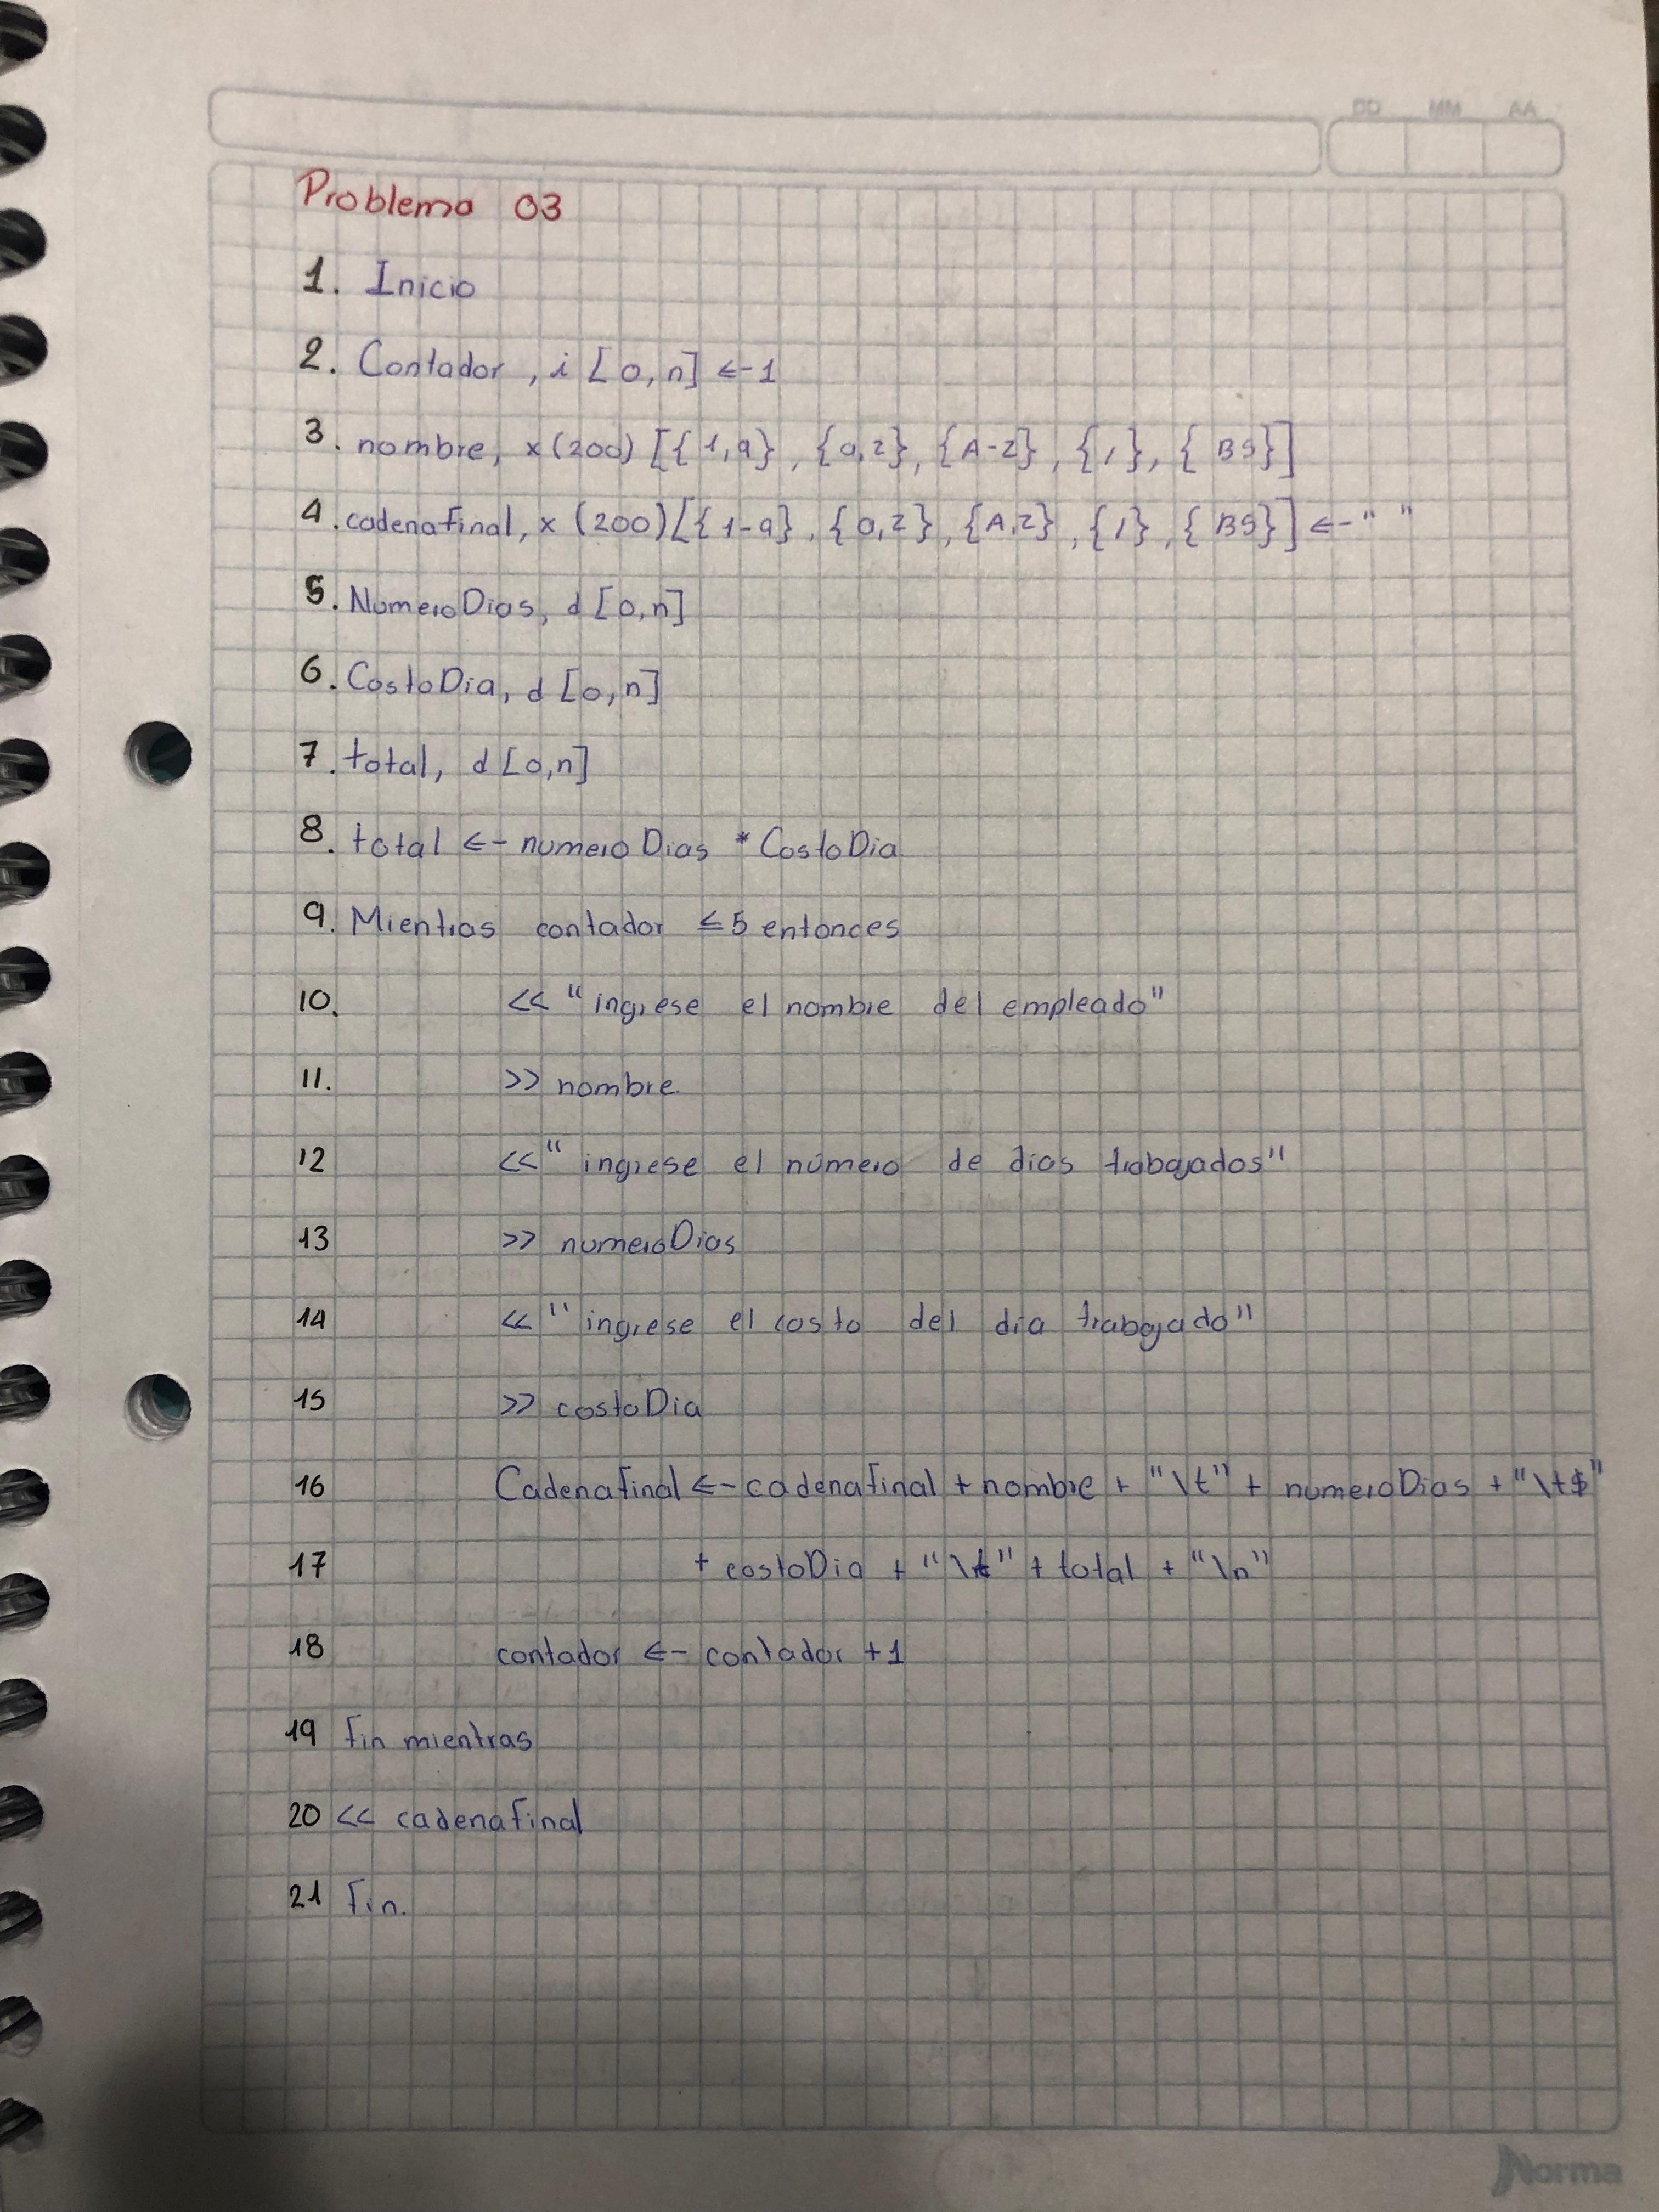 DD MM AA
Problema 03
1. Inicio
2. Contador, i [0,n] <-1
3. nombre, x(200) [{1,9}, {a,z}, {A-Z}, {/}, {BS}]
4. cadenafinal, x (200)[{1-9}, {a,z}, {A,Z}, {/}, {BS}] <-" "
5. NumeroDias, d [0,n]
6. CostoDia, d [0,n]
7. total, d [0,n]
8. total <- numeroDias * CostoDia
9. Mientras contador ≤5 entonces
10. << "ingrese el nombre del empleado"
11. >> nombre
12 << "ingrese el número de dias trabajados"
13 >> numeroDias
14 << "ingrese el costo del dia trabajado"
15 >> costoDia
16 Cadenafinal <- cadenafinal + nombre + "\t" + numeroDias + "\t$"
17 + costoDia + "\t" + total + "\n"
18 contador <- contador +1
19 fin mientras
20 << cadenafinal
21 fin.
Norma